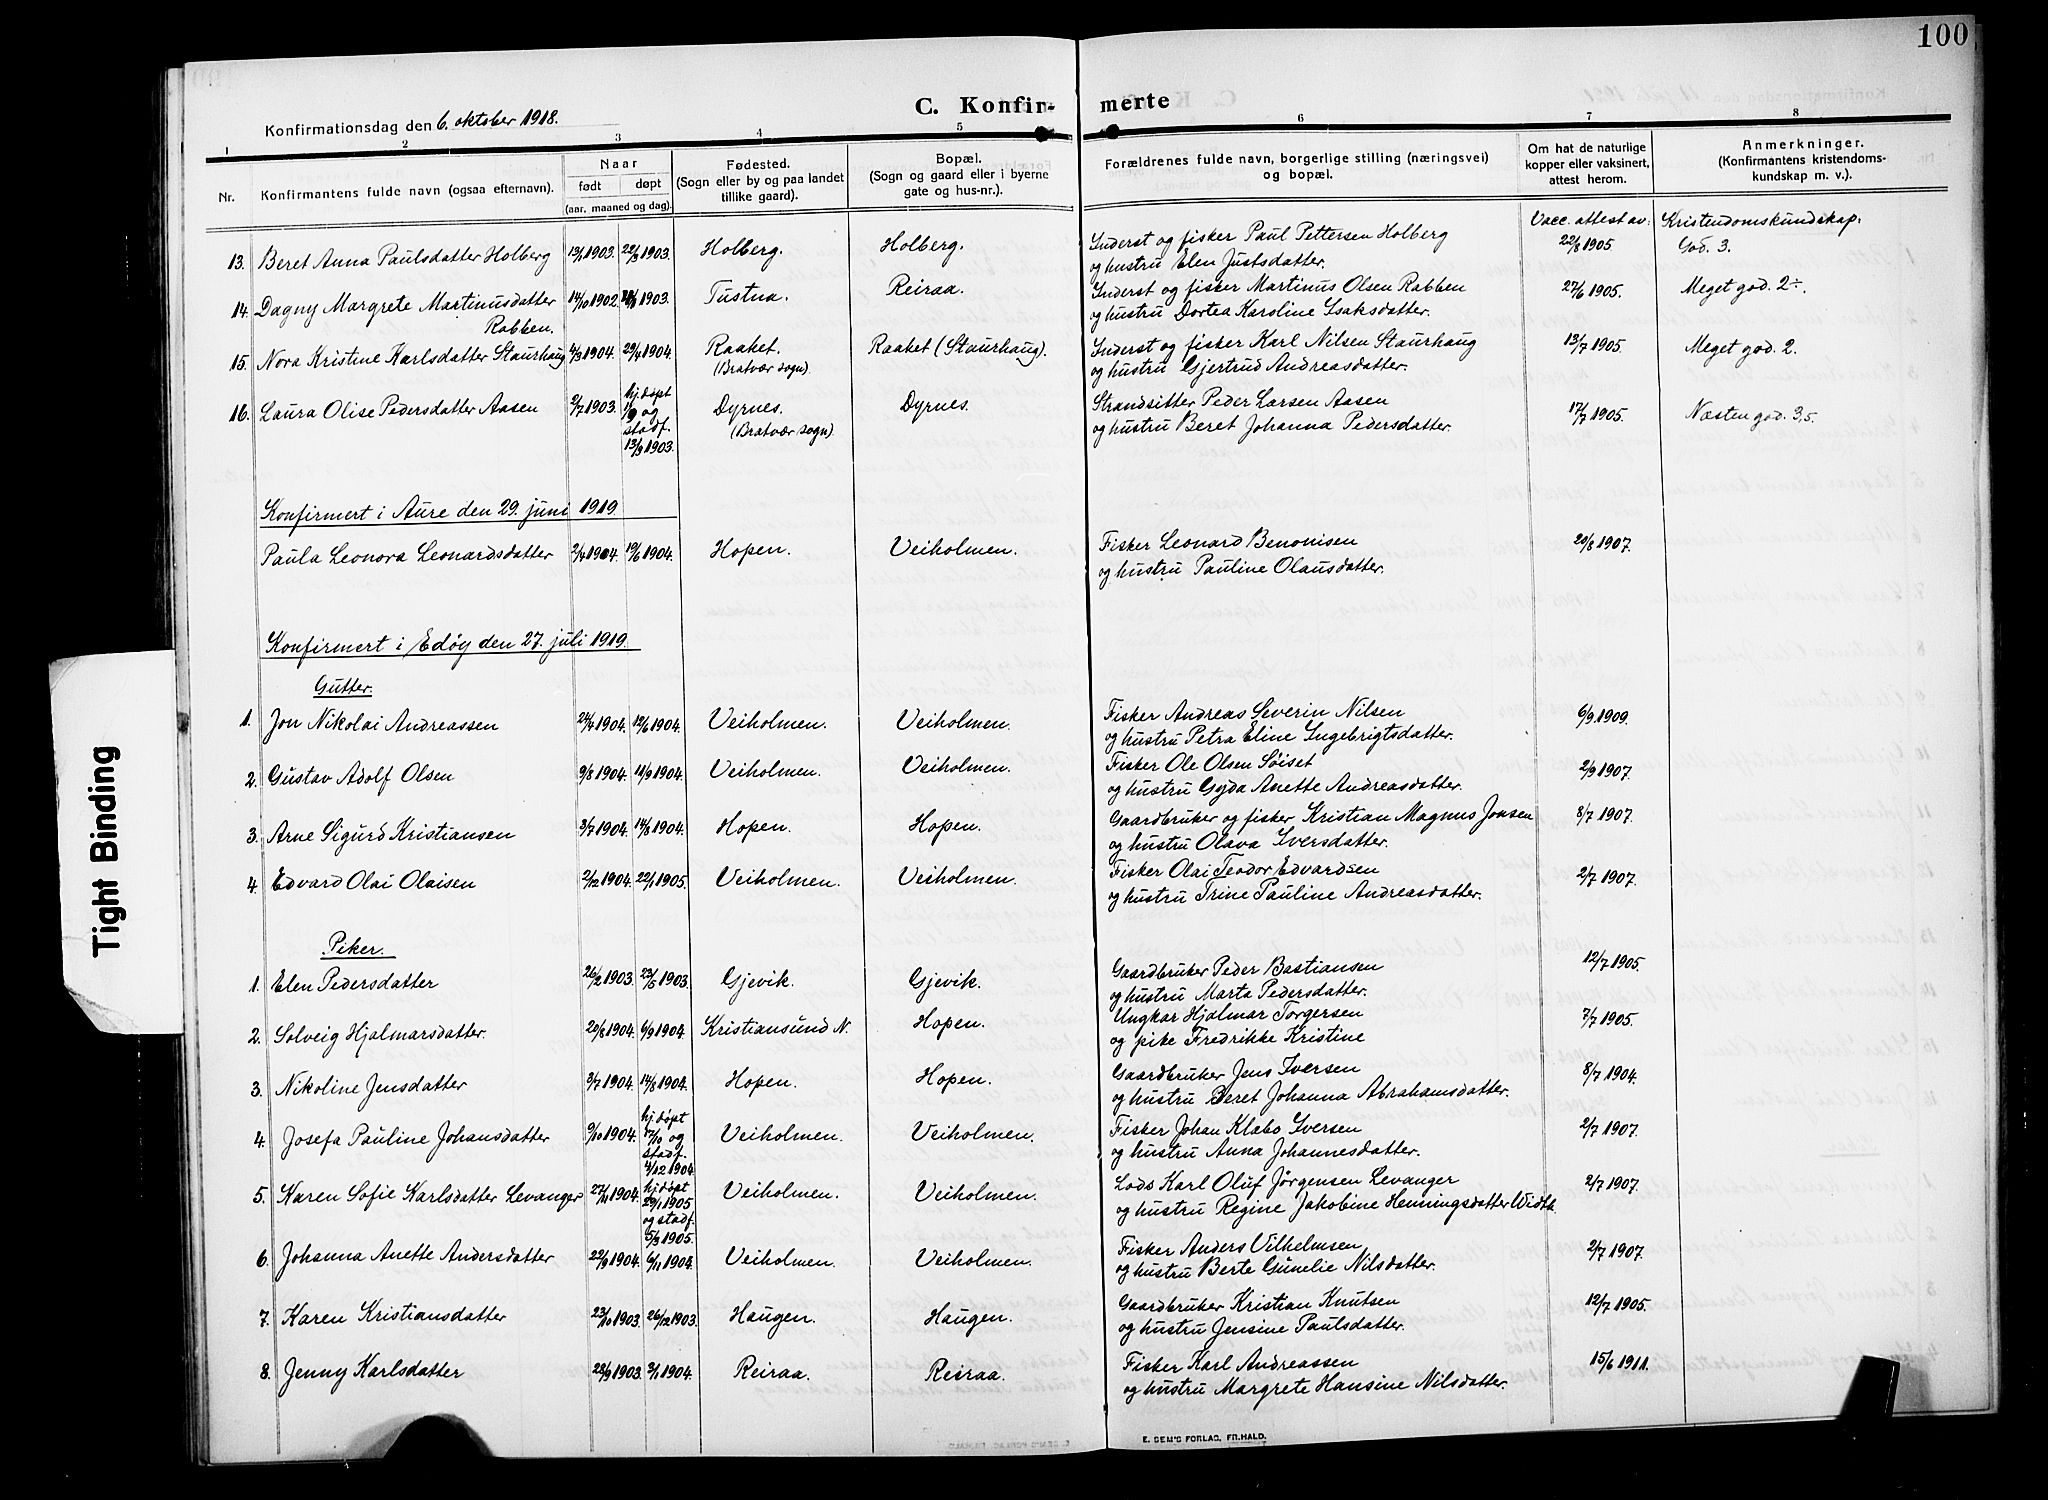 100
C. Konfir- merte
Konfirmationsdag den 6. oktober 1918.
1 2 3 4 5 6 7 8
Nr. Konfirmantens fulde navn (ogsaa efternavn).
Naar
født døpt
(aar, maaned og dag).
Fødested.
(Sogn eller by og paa landet
tillike gaard).
Bopæl.
(Sogn og gaard eller i byerne
gate og hus-nr.).
Forældrenes fulde navn, borgerlige stilling (næringsvei)
og bopæl.
Om hat de naturlige
kopper eller vaksinert,
attest herom.
Anmerkninger.
(Konfirmantens kristendoms-
kundskap m. v.).
Vacc. attest av: Kristendomskundskap:
13. Beret Anna Paulsdatter Holberg 13/1 1903. 22/3 1903. Holberg. Holberg. Inderst og fisker Paul Pettersen Holberg 22/8 1905 God. 3.
og hustru Elen Justsdatter.
14. Dagny Margrete Martinusdatter 14/10 1902. 1903. Tustna. Reiraa. Inderst og fisker Martinus Olsen Rabben 27/6 1905. Meget god. 2÷.
Rabben. og hustru Dortea Karoline Isaksdatter.
15. Nora Kristine Karlsdatter Staurhaug 4/3 1904. 29/4 1904. Raaket. Raaket (Staurhaug). Inderst og fisker Karl Nilsen Staurhaug 13/7 1905. Meget god. 2.
(Bratvær sogn) og hustru Gjertrud Andreasdatter.
16. Laura Olise Pedersdatter Aasen 2/7 1903. hj. døpt
1/9 og
stadf.
13/9 1903. Dyrnes. Dyrnes. Strandsitter Peder Larsen Aasen 17/7 1905. Næsten god. 3,5.
(Bratvær sogn) og hustru Beret Johanna Pedersdatter.
Konfirmert i Aure den 29. juni 1919
Paula Leonora Leonardsdatter 2/4 1904. 19/6 1904. Hopen. Veiholmen. Fisker Leonard Benonisen 20/8 1907.
og hustru Pauline Olausdatter.
Konfirmert i Edøy den 27. juli 1919.
Gutter.
1. Jon Nikolai Andreassen 24/4 1904. 12/6 1904. Veiholmen. Veiholmen. Fisker Andreas Severin Nilsen 6/9 1909.
og hustru Petra Eline Ingebrigtsdatter.
2. Gustav Adolf Olsen 9/8 1904. 11/9 1904. Veiholmen. Veiholmen. Fisker Ole Olsen Søiset 2/9 1907.
og hustru Gyda Anette Andreasdatter.
3. Arne Sigurd Kristiansen 3/7 1904. 14/8 1904. Hopen. Hopen. Gaardbruker og fisker Kristian Magnus Jonsen 8/7 1907.
og hustru Olava Iversdatter.
4. Edvard Olai Olaisen 2/12 1904. 22/1 1905. Veiholmen. Veiholmen. Fisker Olai Teodor Edvardsen 2/7 1907.
og hustru Trine Pauline Andreasdatter.
Piker.
1. Elen Pedersdatter 26/2 1903. 23/5 1903. Gjevik. Gjevik. Gaardbruker Peder Bastiansen 12/7 1905.
og hustru Marta Pedersdatter.
2. Solveig Hjalmarsdatter. 20/8 1904. 6/9 1904. Kristiansund N. Hopen. Ungkar Hjalmar Torgersen 7/7 1905.
og pike Fredrikke Kristine
3. Nikoline Jensdatter 3/7 1904. 14/8 1904. Hopen. Hopen. Gaardbruker Jens Iversen 8/7 1904.
og hustru Beret Johanna Abrahamsdatter.
4. Josefa Pauline Johansdatter 9/10 1904. hj. døpt
17/10 og
stadf.
4/12 1904 Veiholmen. Veiholmen. Fisker Johan Klæbo Iversen 2/7 1907.
og hustru Anna Johannesdatter.
5. Karen Sofie Karlsdatter Levanger 27/11 1904. hj. døpt
29/1 1905
og stadf.
5/3 1905. Veiholmen. Veiholmen. Lods Karl Oluf Jørgensen Levanger 2/7 1907.
og hustru Regine Jakobine Henningsdatter
6. Johanna Anette Andersdatter 22/9 1904. 6/11 1904. Veiholmen. Veiholmen. Fisker Anders Vilhelmsen 2/7 1907.
og hustru Berte Gunelie Nilsdatter.
7. Karen Kristiansdatter 23/10 1903. 26/12 1903. Haugen. Haugen. Gaardbruker Kristian Knutsen 12/7 1905.
og hustru Jensine Paulsdatter.
8. Jenny Karlsdatter 28/9 1903. 3/1 1904. Reiraa. Reiraa. Fisker Karl Andreassen 15/6 1911.
og hustru Margrete Hansine Nilsdatter.
E. SEM'S FORLAG, FR.HALD.
Tight Binding